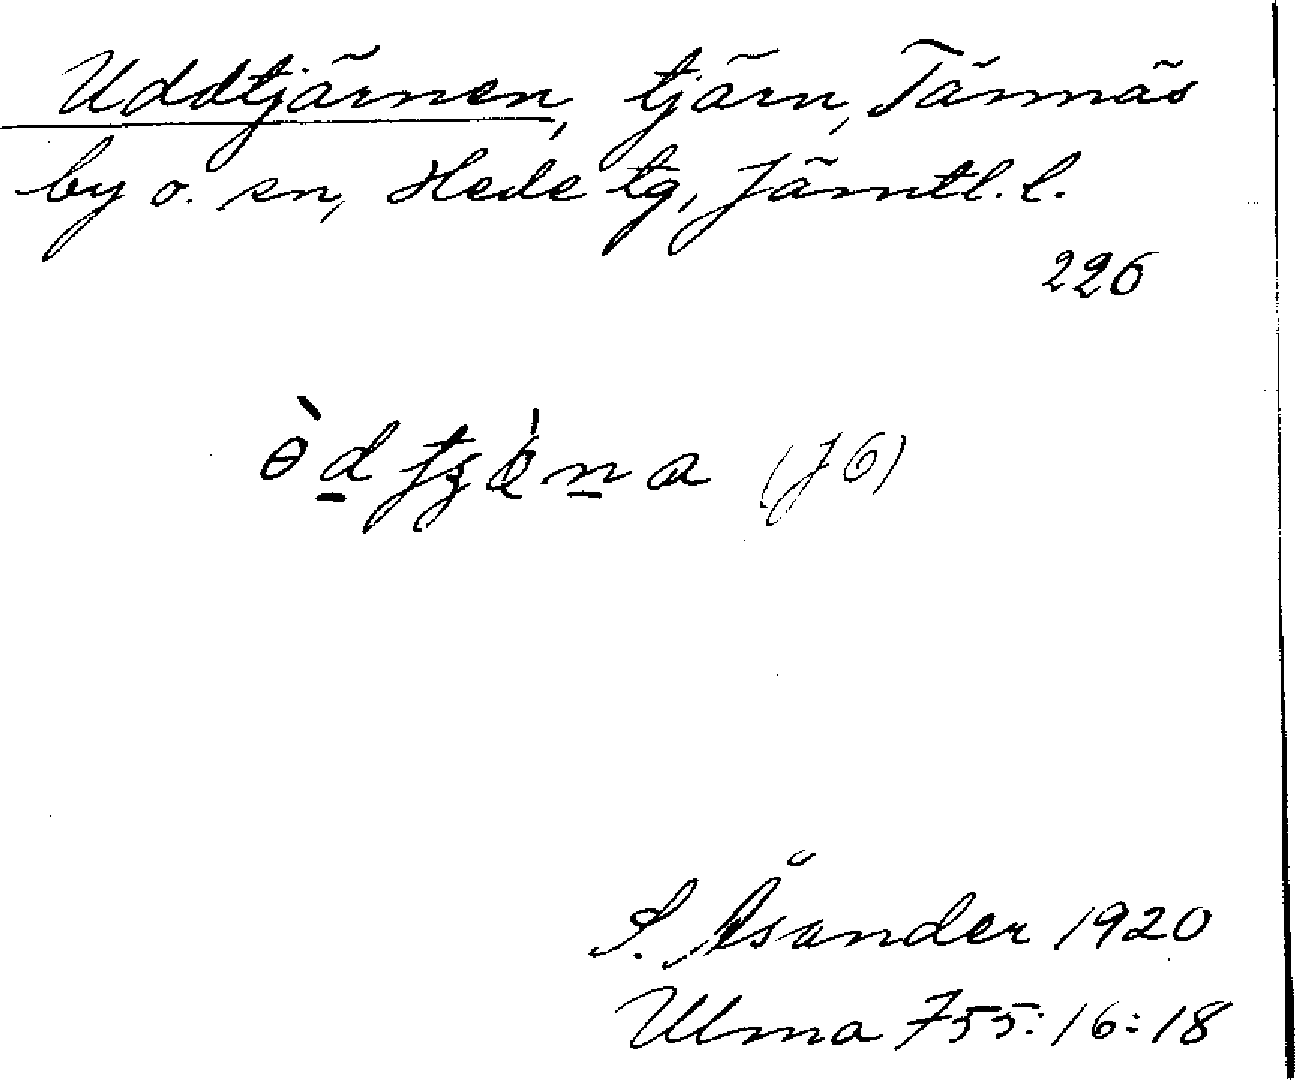 Uddtjärnen, tjärn, Tännäs
by o. sn, Hede tg, Jämtl. l.
226
(J6)
S. Åsander 1920
Ulma 755:16:18